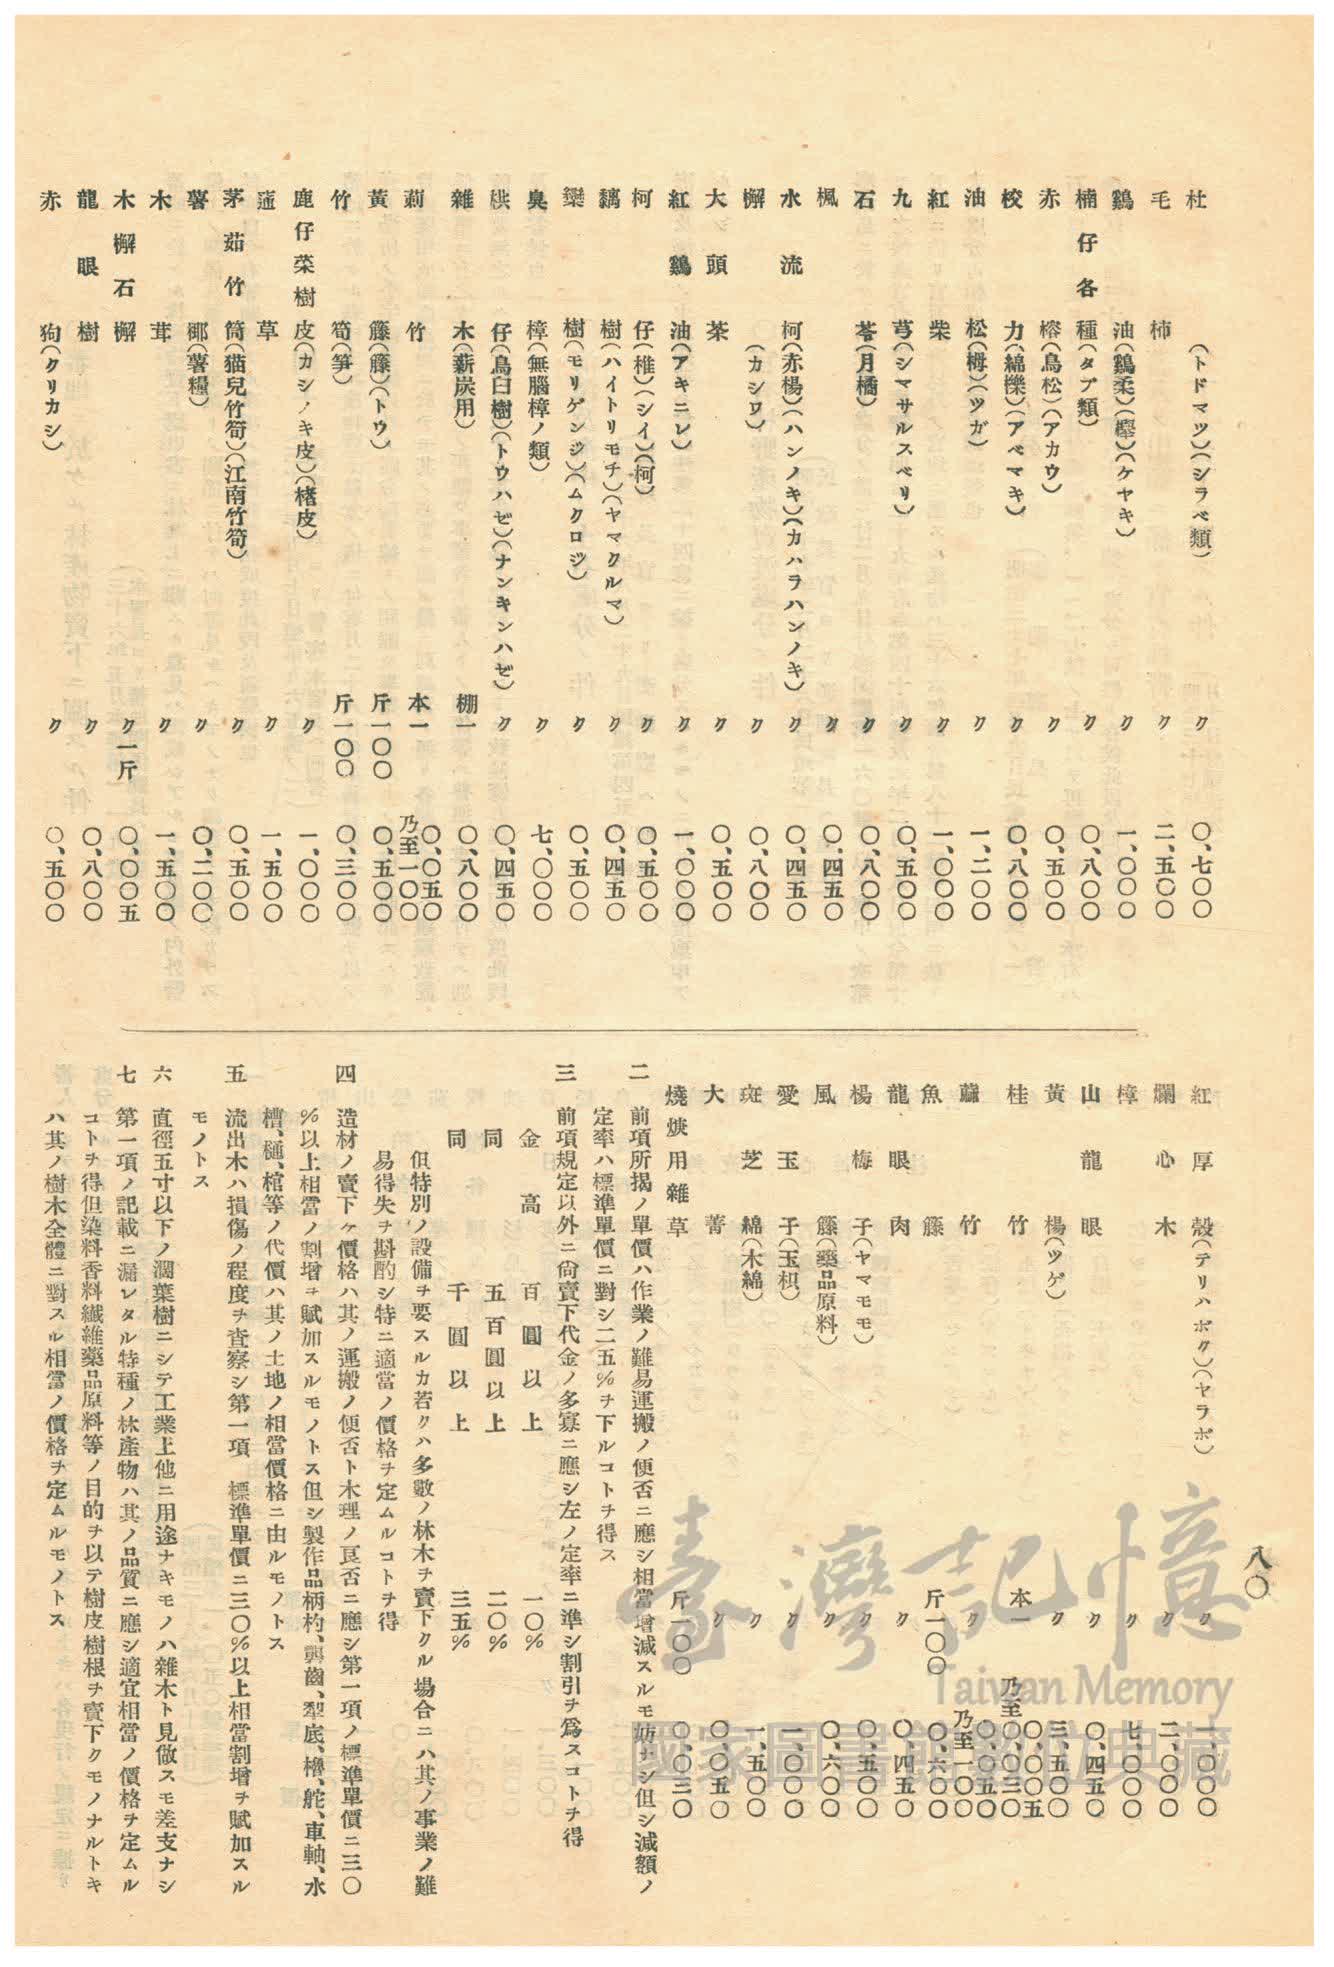 八〇
杜 (トドマツ)(シラベ類) 〃 〇、七〇〇
毛柿 〃 二、五〇〇
鷄油(鷄柔)(櫸)(ケヤキ) 〃 一、〇〇〇
楠仔各種(タブ類) 〃 〇、八〇〇
赤榕(鳥松)(アカウ) 〃 〇、五〇〇
校力(綿擽)(アベマキ) 〃 〇、八〇〇
油松(栂)(ツガ) 〃 一、二〇〇
紅柴 〃 一、〇〇〇
九芎(シマサルスベリ) 〃 〇、五〇〇
石苓(月橘) 〃 〇、八〇〇
楓 〃 〇、四五〇
水流柯(赤楊)(ハンノキ)(カハラハンノキ) 〃 〇、四五〇
槲(カシワ) 〃 〇、八〇〇
大頭茶 〃 〇、五〇〇
紅鷄油(アキニレ) 〃 一、〇〇〇
柯仔(椎)(シイ)(柯) 〃 〇、五〇〇
黐樹(ハイトリモチ)(ヤマクルマ) 〃 〇、四五〇
欒樹(モリゲンジ)(ムクロジ) 〃 〇、五〇〇
臭樟(無腦樟ノ類) 〃 七、〇〇〇
栱仔(烏臼樹)(トウハゼ)(ナンキンハゼ) 〃 〇、四五〇
雜木(薪炭用) 棚一 〇、八〇〇
莿竹 本一 〇、〇五〇乃至一〇〇
黃籐(藤)(トウ) 斤一〇〇 〇、五〇〇
竹筍(笋) 斤一〇〇 〇、三〇〇
鹿仔菜樹皮(カシノキ皮)(楮皮) 〃 一、〇〇〇
草 〃 一、五〇〇
茅茹竹筒(猫兒竹筍)(江南竹筍) 〃 〇、五〇〇
薯榔(薯糧) 〃 〇、二〇〇
木茸 〃 一、五〇〇
木槲石槲 〃一斤 〇、〇〇五
龍眼樹 〃 〇、八〇〇
赤狗(クリカシ) 〃 〇、五〇〇
紅厚殼(テリハボク)(ヤラボ) 〃 一、〇〇〇
爛心木 〃 二、〇〇〇
樟 〃 七、〇〇〇
山龍眼 〃 〇、四五〇
黃楊(ツゲ) 〃 三、五〇〇
桂竹 本一 〇、〇〇五乃至〇、〇三〇
蔴竹 〃 〇、〇五〇乃至一〇〇
魚籐 斤一〇〇 〇、六〇〇
龍眼肉 〃 〇、四五〇
楊梅子(ヤマモモ) 〃 〇、五〇〇
風籐(藥品原料) 〃 〇、六〇〇
愛玉子(玉枳) 〃 一、〇〇〇
斑芝綿(木綿) 〃 一、五〇〇
大菁 〃 〇、〇五〇
燒焿用雜草 斤一〇〇 〇、〇三〇
二 前項所揭ノ單價ハ作業ノ難易運搬ノ便否ニ應シ相當增減スルモ妨ナシ但シ減額ノ
定率ハ標準單價ニ對シ二五%ヲ下ルコトヲ得ス
三 前項規定以外ニ尙賣下代金ノ多寡ニ應シ左ノ定率ニ準シ割引ヲ爲スコトヲ得
金高 百圓以上 一〇%
同 五百圓以上 二〇%
同 千圓以上 三五%
但特別ノ設備ヲ要スルカ若クハ多數ノ林木ヲ賣下クル場合ニハ其ノ事業ノ難
易得失ヲ斟酌シ特ニ適當ノ價格ヲ定ムルコトヲ得
四 造材ノ賣下ケ價格ハ其ノ運搬ノ便否ト木理ノ良否ニ應シ第一項ノ標準單價ニ三〇
%以上相當ノ割增ヲ賦加スルモノトス但シ製作品柄杓、礱齒、犁底、櫓、舵、車軸、水
槽、樋、棺等ノ代價ハ其ノ土地ノ相當價格ニ由ルモノトス
五 流出木ハ損傷ノ程度ヲ査察シ第一項 標準單價ニ三〇%以上相當割增ヲ賦加スル
モノトス
六 直徑五寸以下ノ濶葉樹ニシテ工業上他ニ用途ナキモノハ雜木ト見做スモ差支ナシ
七 第一項ノ記載ニ漏レタル特種ノ林産物ハ其ノ品質ニ應シ適宜相當ノ價格ヲ定ムル
コトヲ得但染料香料纖維藥品原料等ノ目的ヲ以テ樹皮樹根ヲ賣下クモノナルトキ
ハ其ノ樹木全體ニ對スル相當ノ價格ヲ定ムルモノトス
臺灣記憶
Taiwan Memory
國家圖書館數位典藏